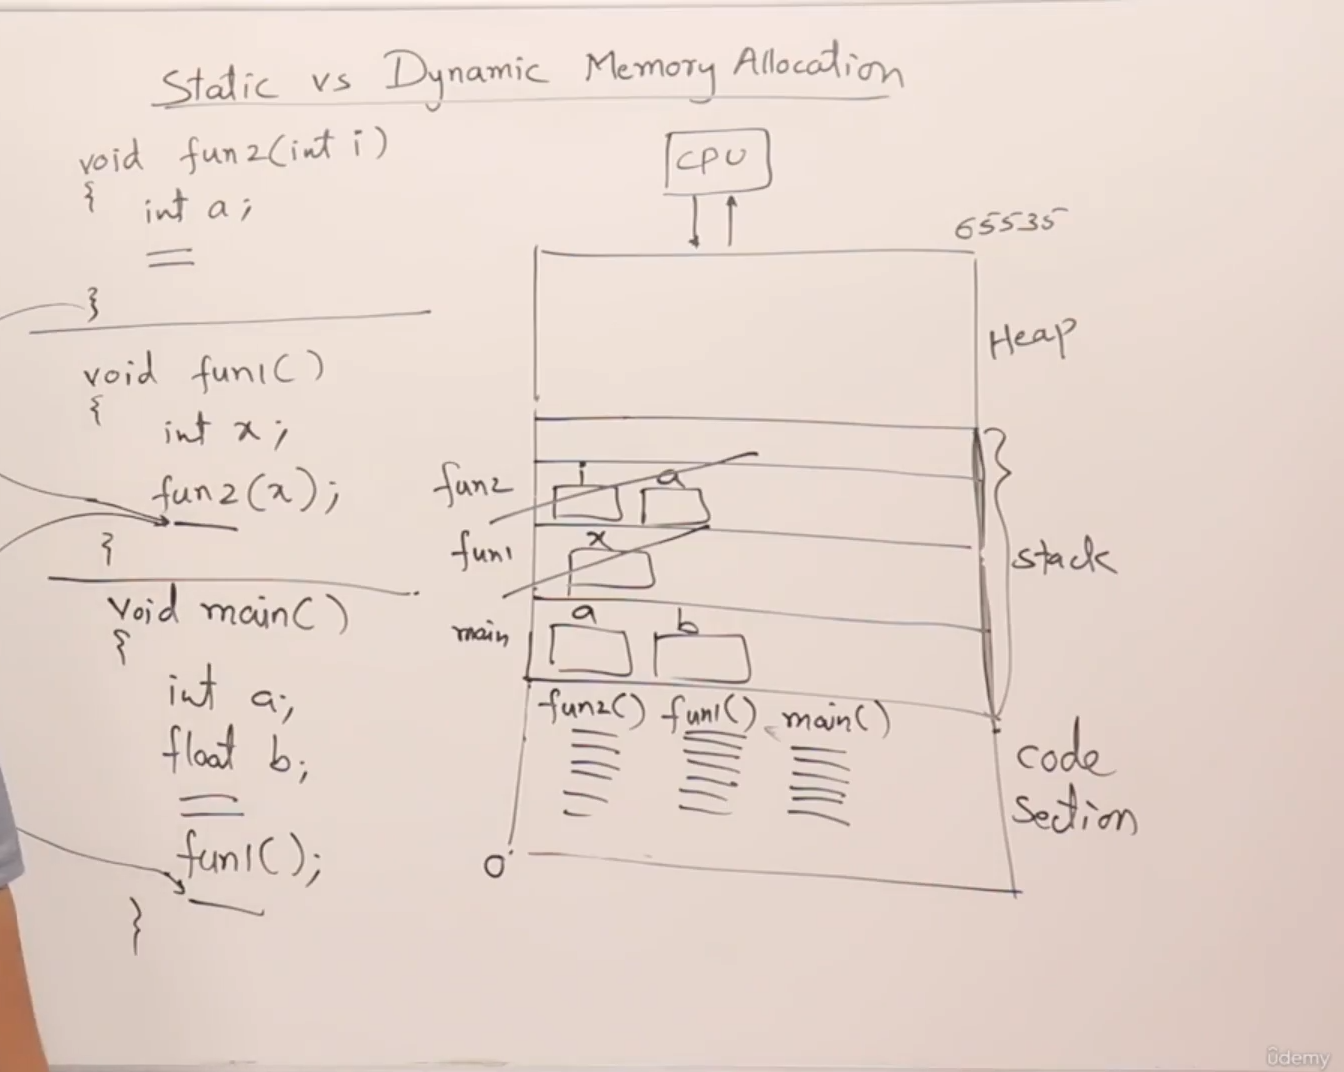 Static vs Dynamic Memory Allocation
void fun2(int i)
{
int a;
}
void fun1()
{
int x;
fun2(x);
}
void main()
{
int a;
float b;
fun1();
}
CPU
65535
Heap
fun2 i a
fun1 x
main a b
stack
fun2() fun1() main()
code
section
0
ûdemy